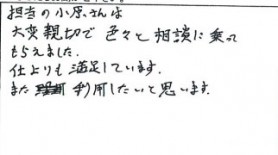 担当の小原さんは
大変親切で色々と相談に乗って
もらえました.
仕上りも満足しています.
また利用したいと思います.